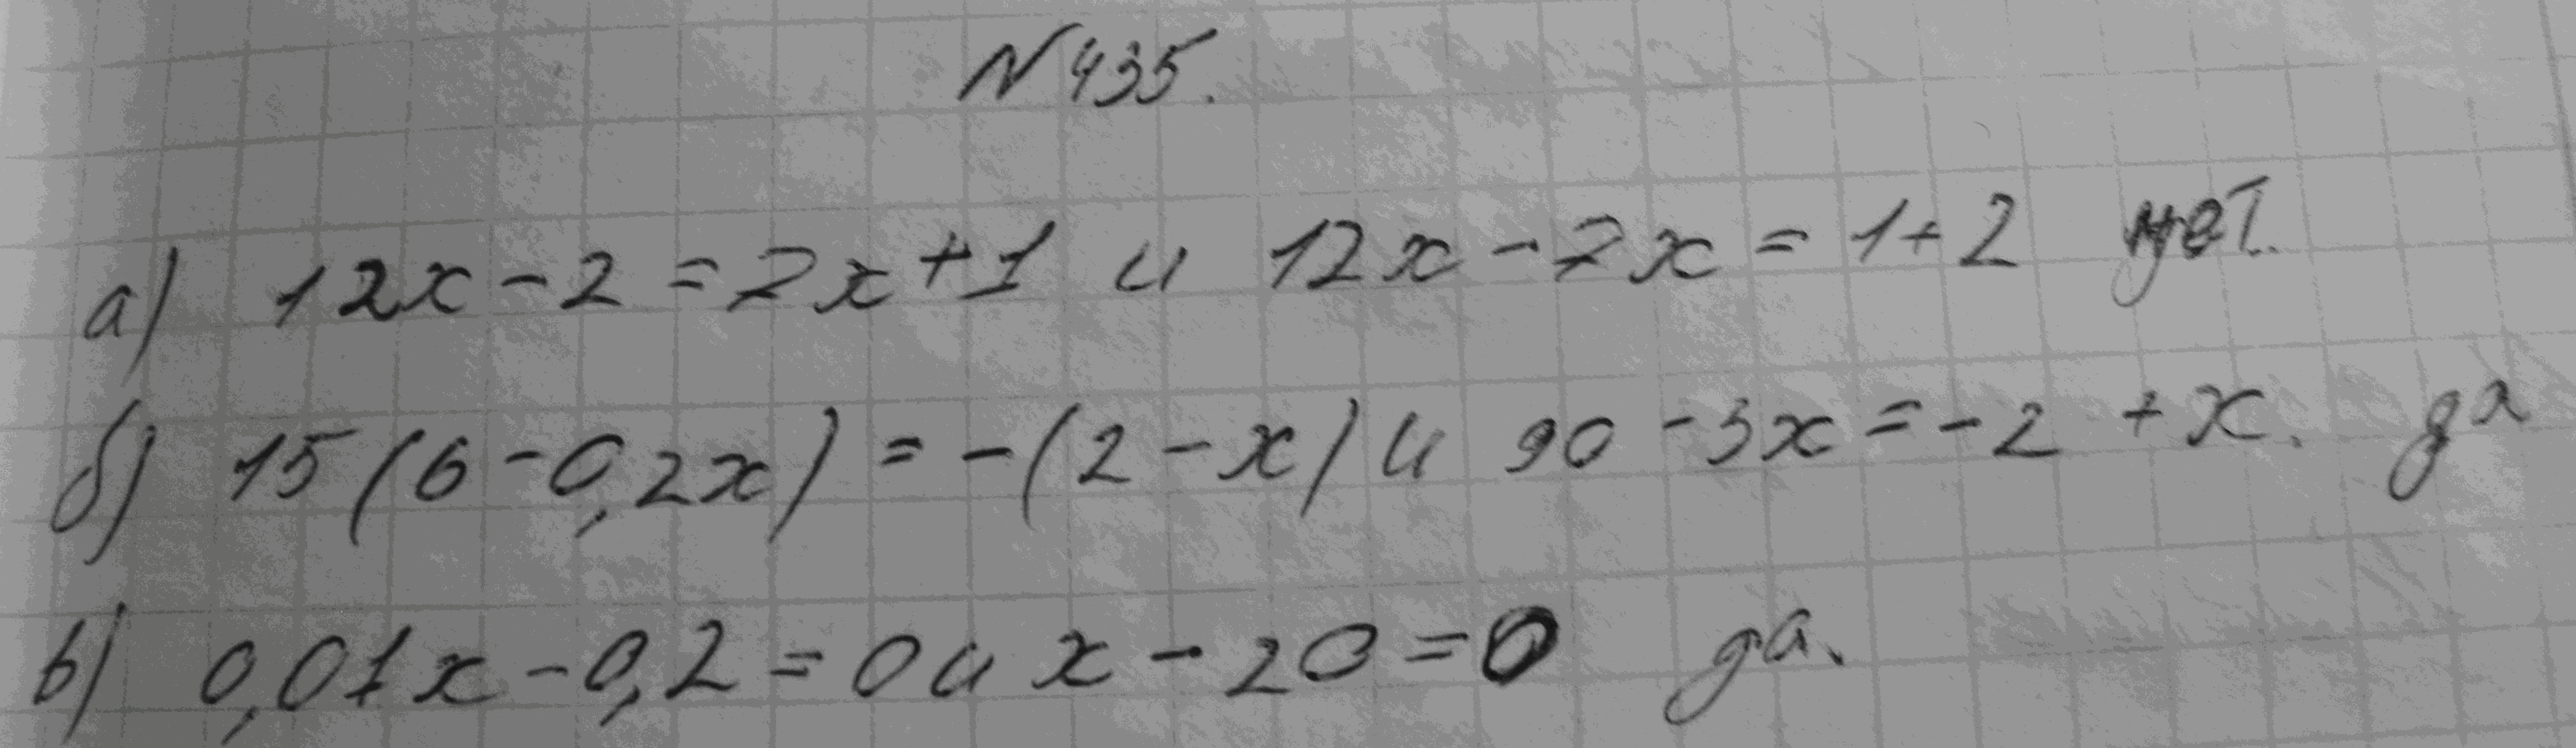 №435.
а) 12x - 2 = 2x + 1 и 12x - 2x = 1 + 2 нет.
б) 15(6 - 0,2x) = -(2 - x) и 90 - 3x = -2 + x. да
в) 0,01x - 0,2 = 0 и x - 20 = 0 да.